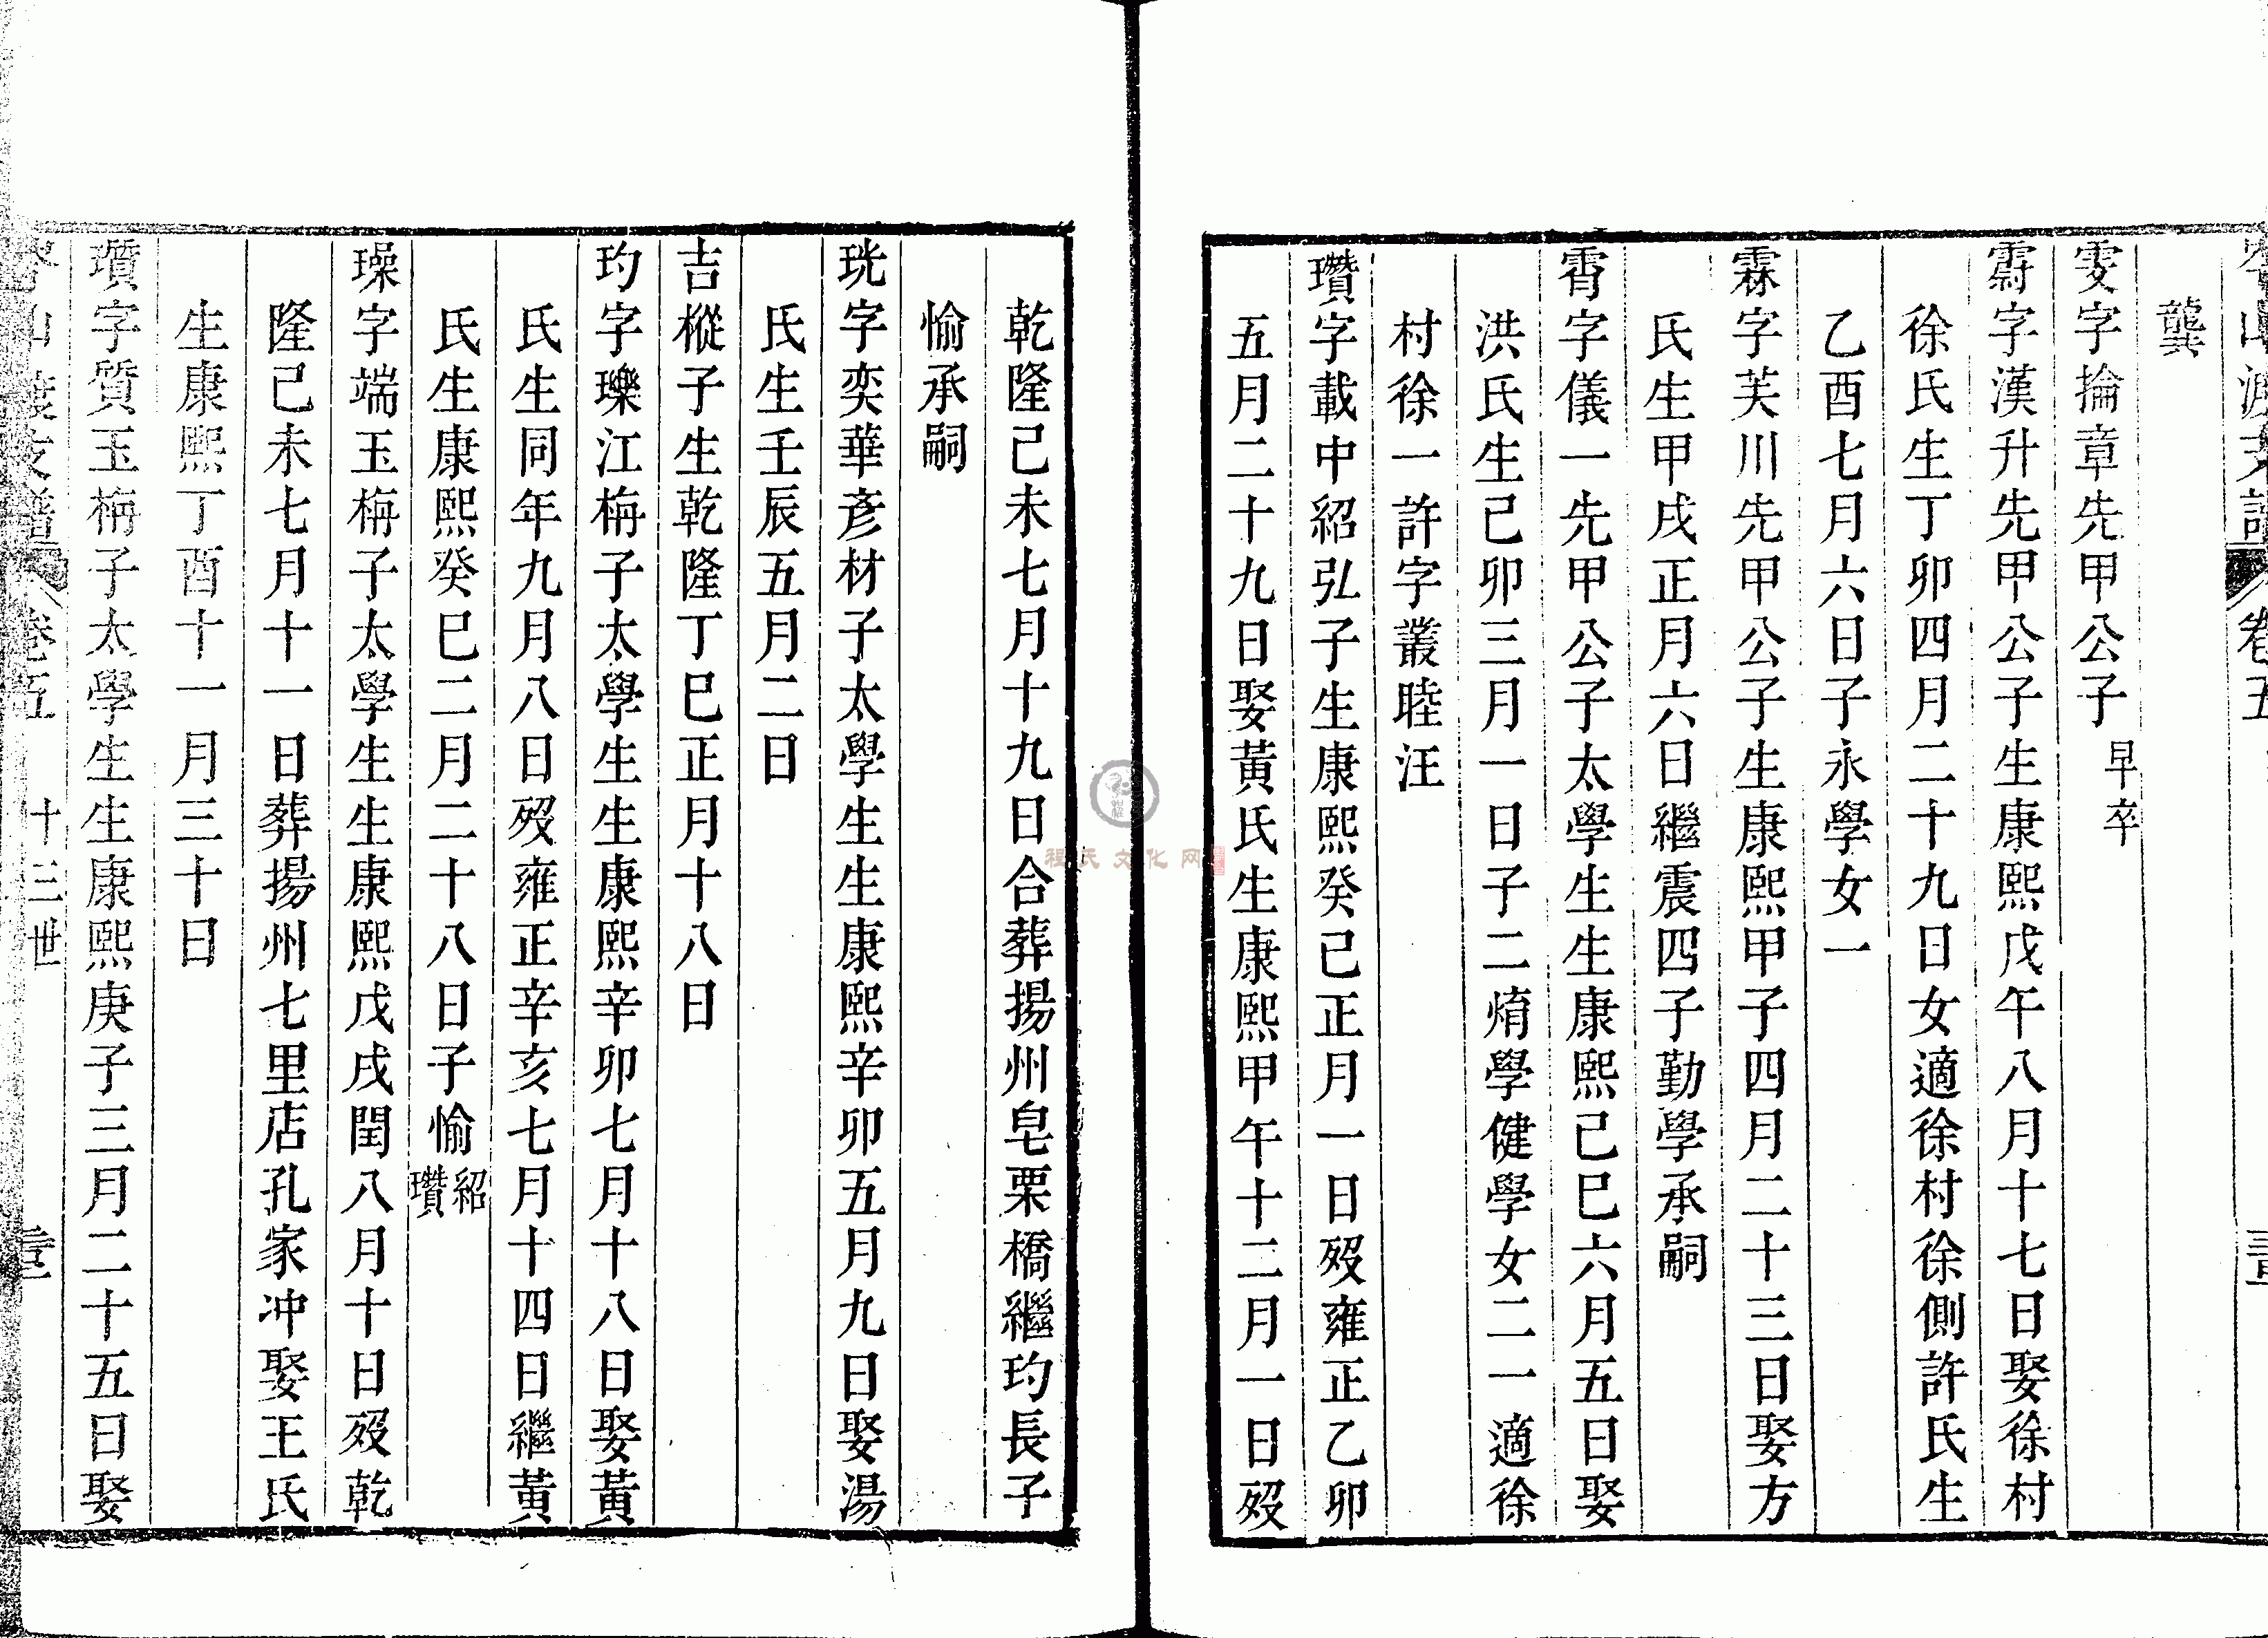 龔
雯字掄章先甲公子早卒
霨字漢升先甲公子生康熙戊午八月十七日娶徐村
徐氏生丁卯四月二十九日女適徐村徐側許氏生
乙酉七月六日子永學女一
霖字芙川先甲公子生康熙甲子四月二十三日娶方
氏生甲戌正月六日繼震四子勤學承嗣
霄字儀一先甲公子太學生生康熙己巳六月五日娶
洪氏生己卯三月一日子二焴學健學女二一適徐
村徐一許字叢睦汪
瓚字載中紹弘子生康熙癸巳正月一日歿雍正乙卯
五月二十九日娶黃氏生康熙甲午十二月一日歿
乾隆己未七月十九日合葬揚州皂栗橋繼玓長子
愉承嗣
珖字奕華彥材子太學生生康熙辛卯五月九日娶湯
氏生壬辰五月二日
吉樅子生乾隆丁巳正月十八日
玓字瓅江栴子太學生生康熙辛卯七月十八日娶黃
氏生同年九月八日歿雍正辛亥七月十四日繼黃
氏生康熙癸巳二月二十八日子愉紹瓚
璪字端玉栴子太學生生康熙戊戌閏八月十日歿乾
隆己未七月十一日葬揚州七里店孔家冲娶王氏
生康熙丁酉十一月三十日
瓆字質玉栴子太學生生康熙庚子三月二十五日娶
支譜 卷五 十三世
程氏文化网